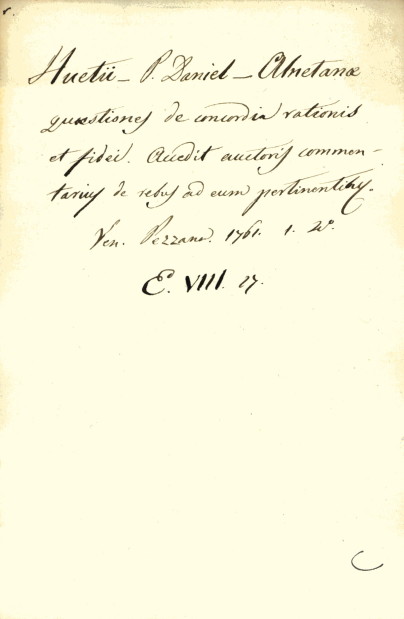 Huetii – P. Daniel – Alnetanæ
quæstiones de concordia rationis
et fidei. Accedit auctoris commen-
tarius de rebus ad eum pertinentibus.
Ven. Pezzana. 1761. 1. 4º.
E. VIII. 27.